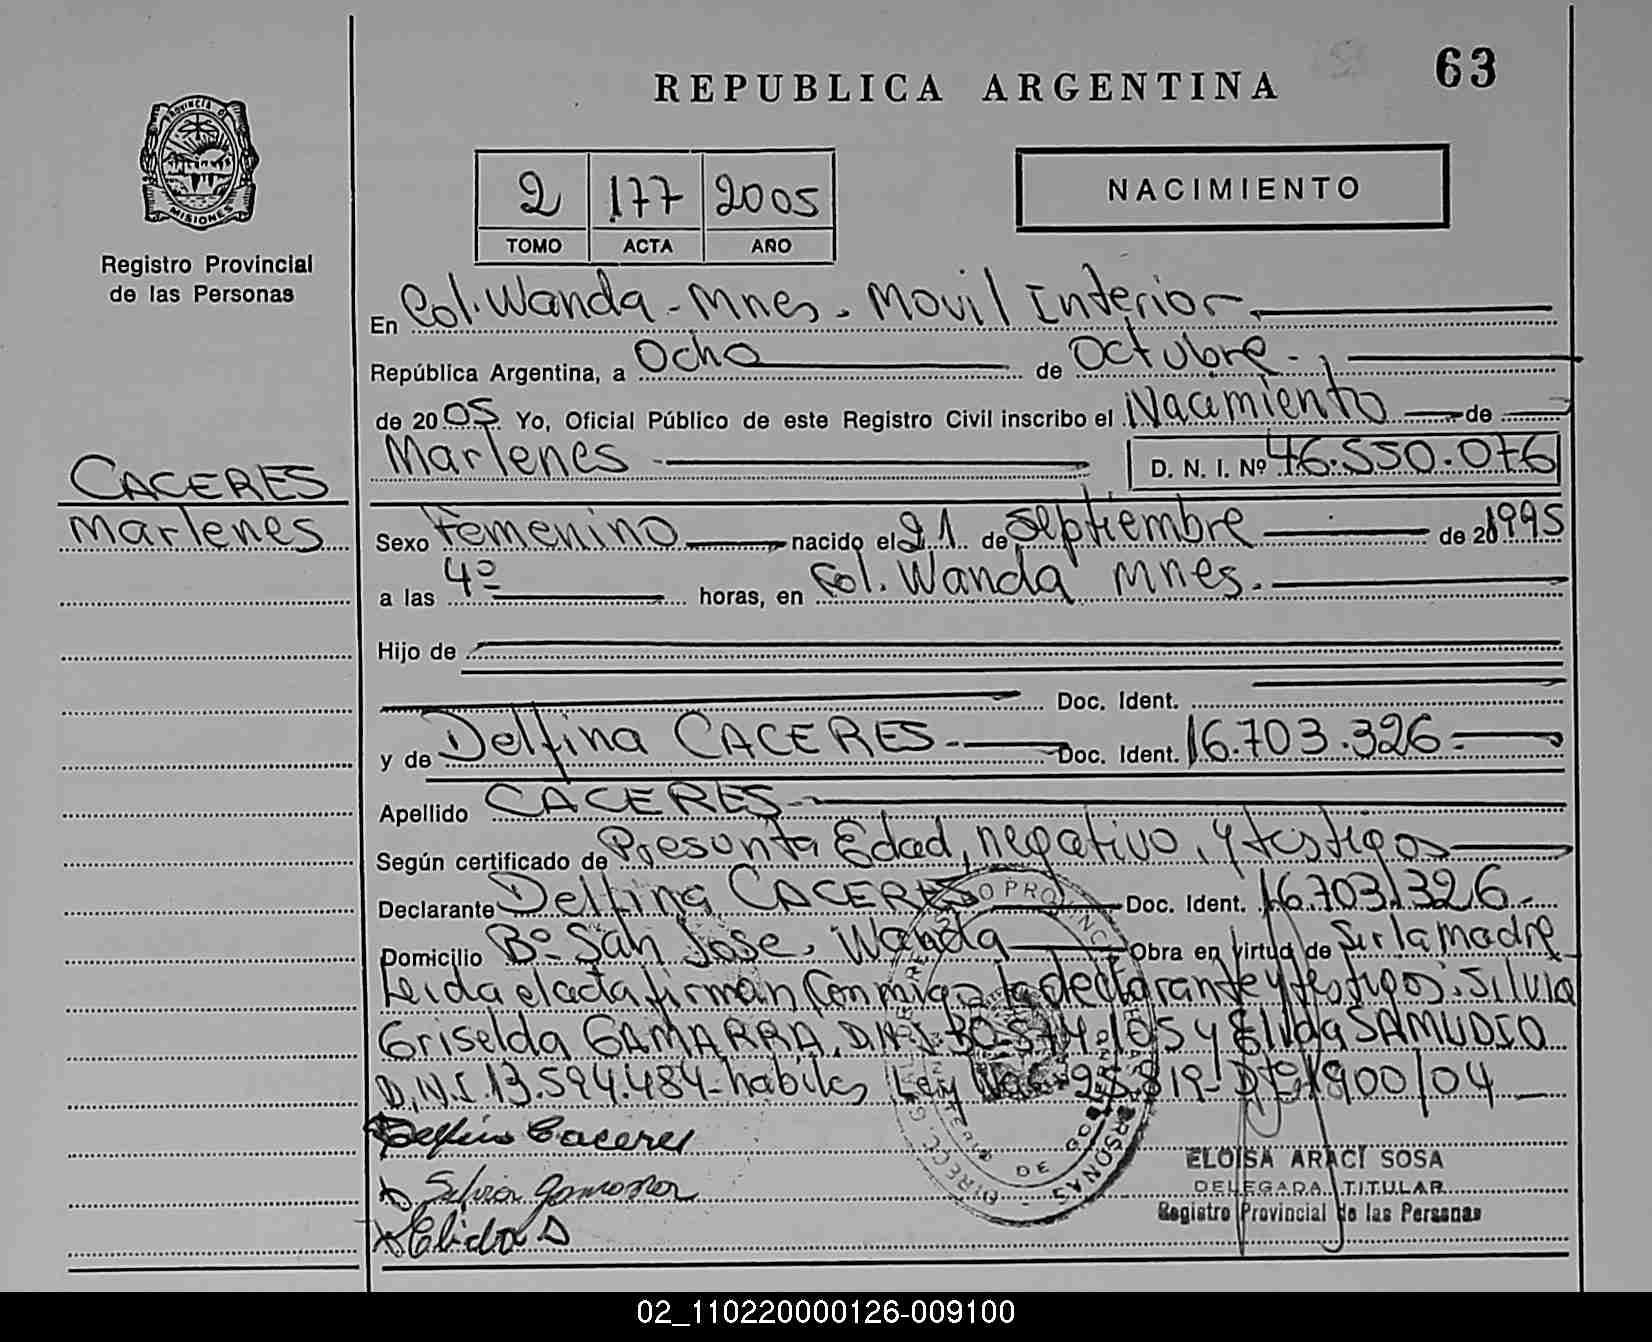 63
REPUBLICA ARGENTINA
PROVINCIA DE MISIONES
Registro Provincial
de las Personas
2 177 2005
TOMO ACTA AÑO
NACIMIENTO
En Col. Wanda - Mnes. Movil Interior
República Argentina, a Ocho de Octubre.
de 2005 Yo, Oficial Público de este Registro Civil inscribo el Nacimiento de
Marlenes D. N. I. Nº 46.550.076
CACERES
Marlenes
Sexo Femenino nacido el 21 de Septiembre de 1995
a las 4º horas, en Col. Wanda Mnes.
Hijo de
Doc. Ident.
y de Delfina CACERES Doc. Ident. 16.703.326
Apellido CACERES
Según certificado de Presunta Edad, negativo, y testigos
Declarante Delfina CACERES Doc. Ident. 16.703.326
Domicilio Bº San Jose, Wanda Obra en virtud de Ser la madre
Leida el acta firman Conmigo la declarante y testigos: Silvia
Griselda GAMARRA, D.N.I. 30.574.105 y Elida SAMUDIO
D.N.I. 13.594.484 - habiles Ley 25.819 - 1900/04
Delfina Caceres
Silvia Gamarra
Elida S
ELOISA ARACI SOSA
DELEGADA TITULAR
Registro Provincial de las Personas
02_110220000126-009100